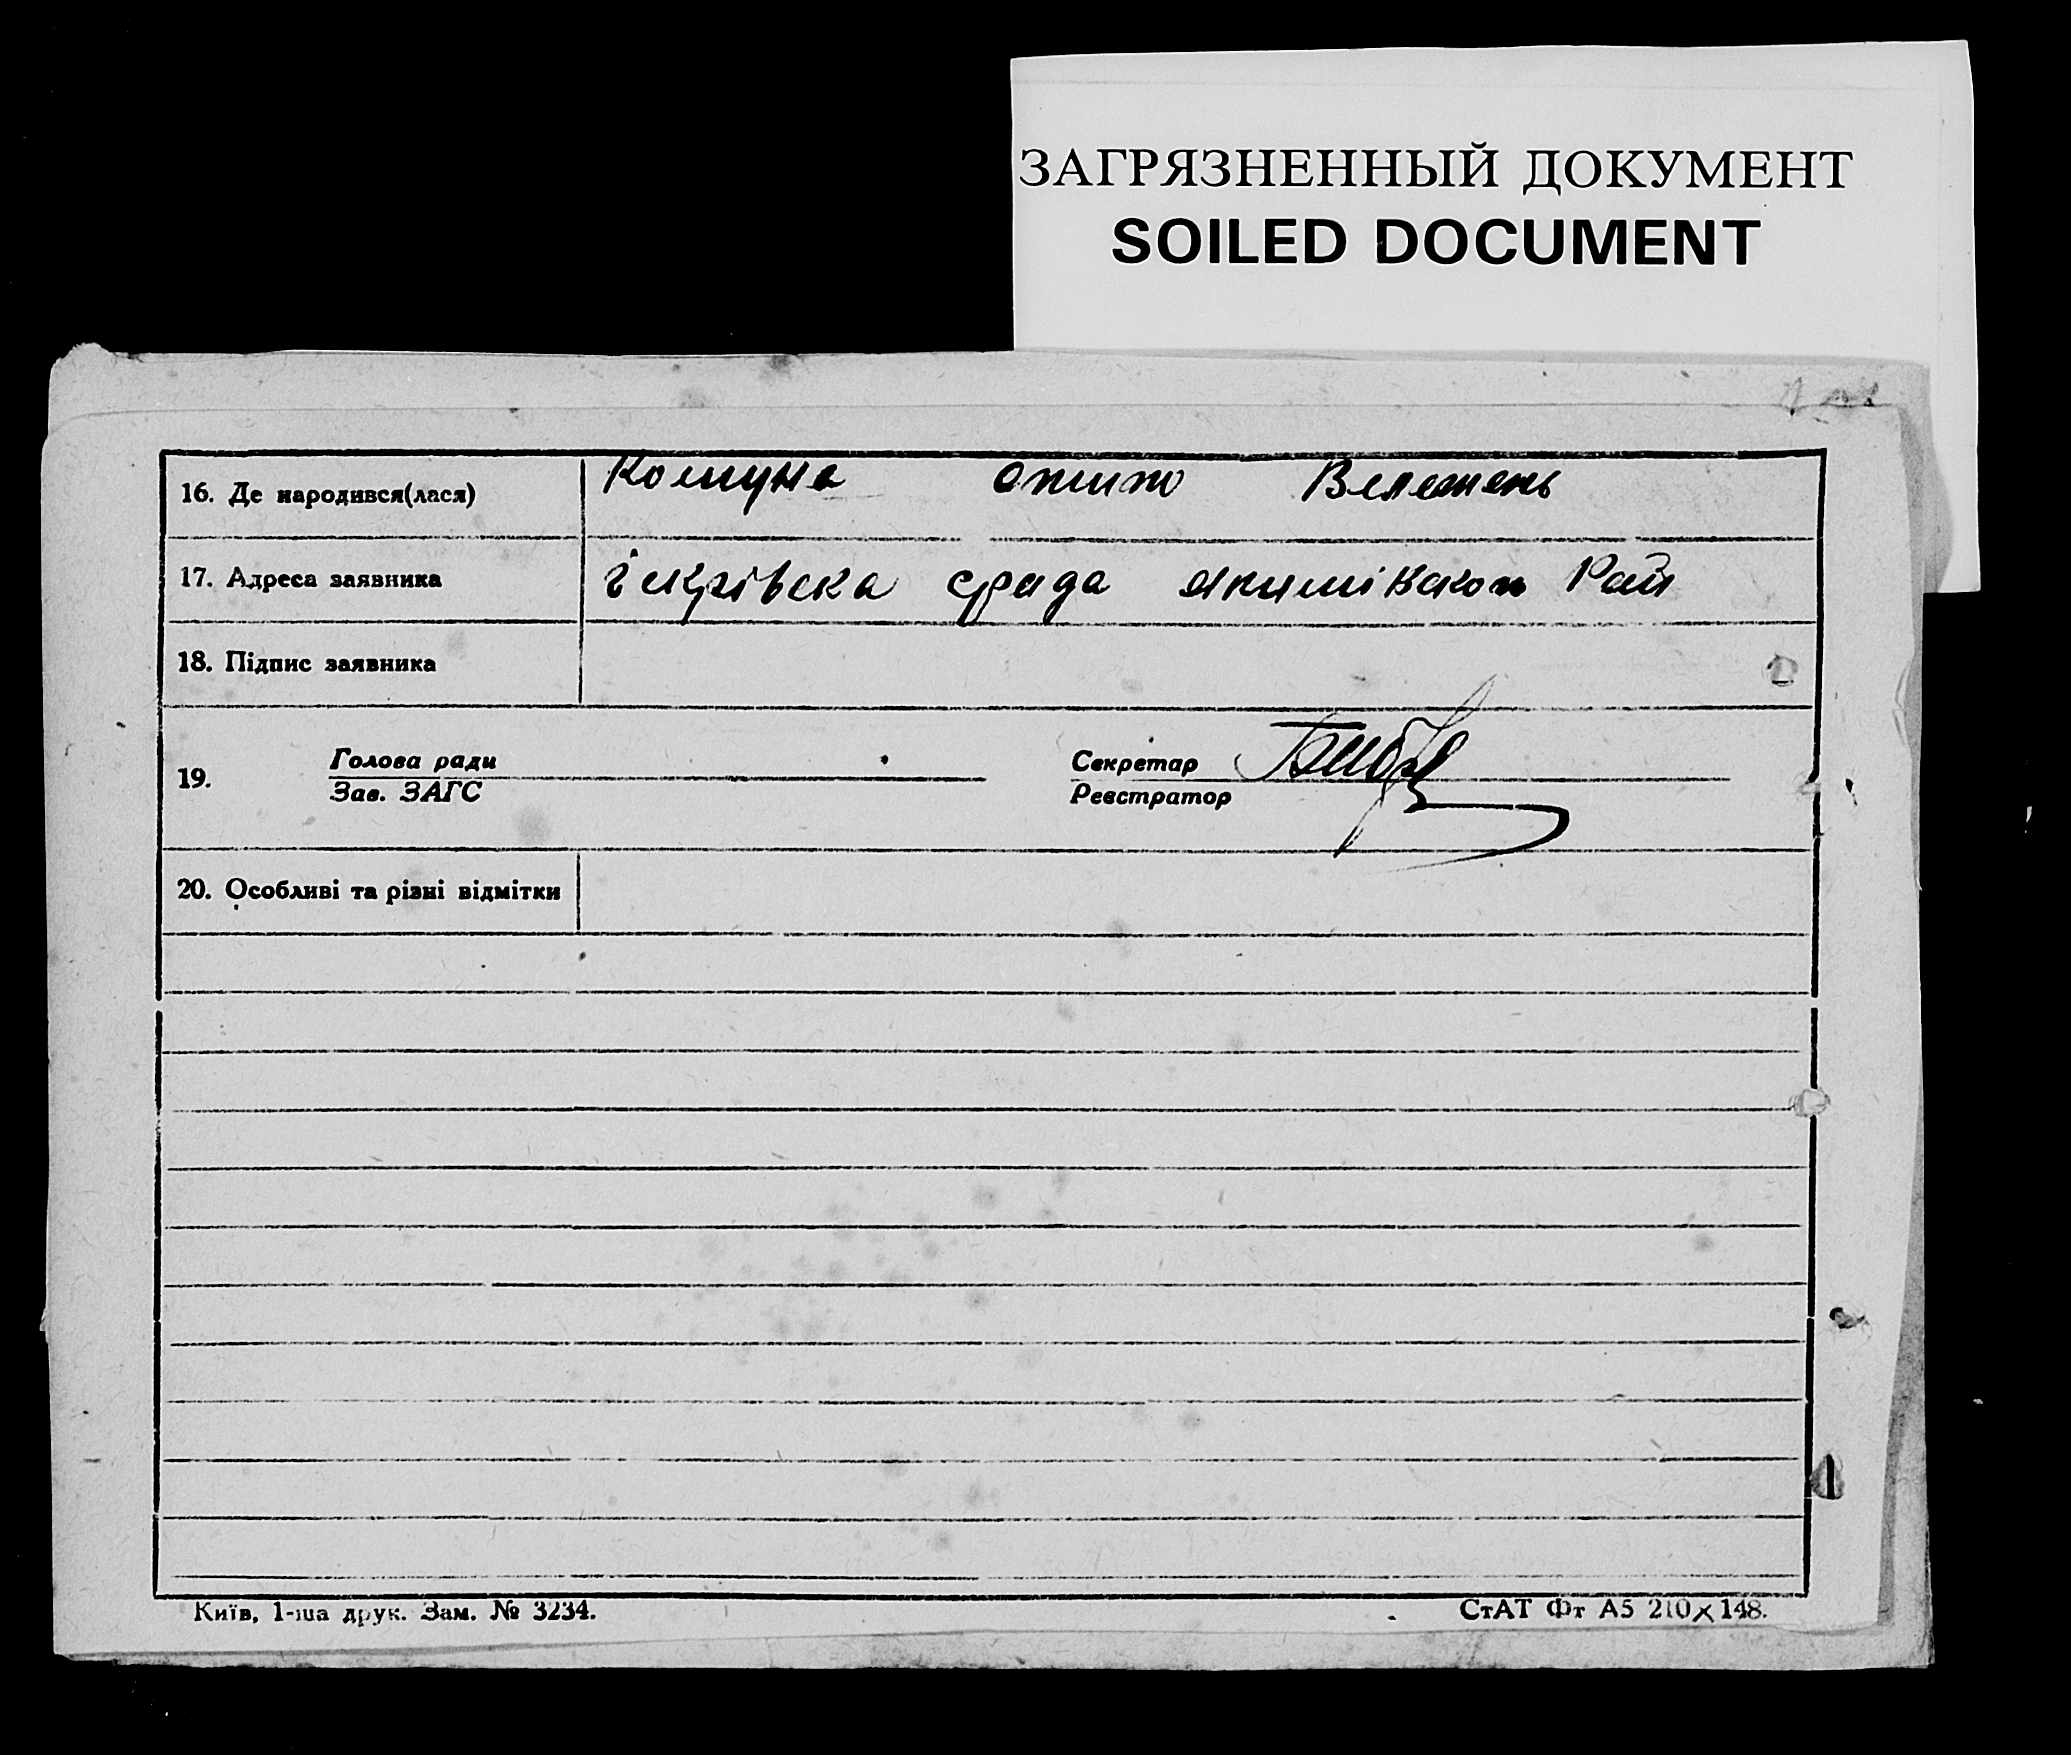 ЗАГРЯЗНЕННЫЙ ДОКУМЕНТ
SOILED DOCUMENT
16. Де народився(лася) Комуна
17. Адреса заявника срада Якимівськои Рай
18. Підпис заявника
19. Голова ради Секретар
Зав. ЗАГС Реєстратор
20. Особливі та різні відмітки
Київ, 1-ша друк. Зам. № 3234. СтАТ Фт А5 210×148.